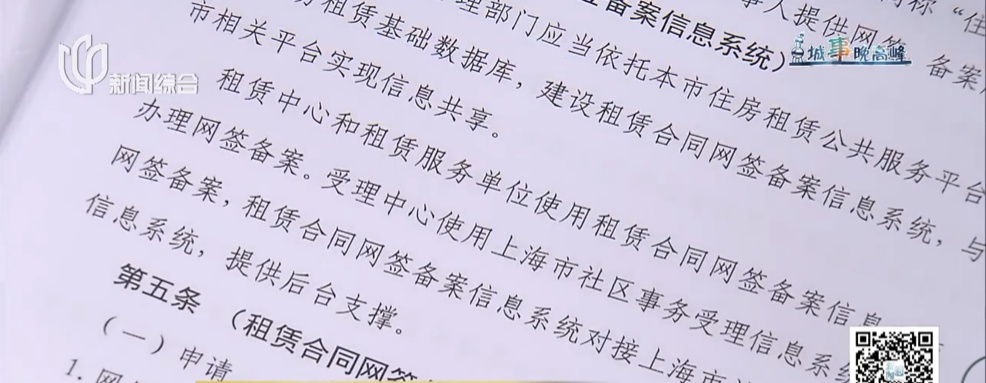 人提供网签备案
签备案信息系统)
理部门应当依托本市住房租赁公共服务平台
租赁基础数据库，建设租赁合同网签备案信息系统，与
市相关平台实现信息共享。
租赁中心和租赁服务单位使用租赁合同网签备案信息
办理网签备案。受理中心使用上海市社区事务受理信息系统
网签备案，租赁合同网签备案信息系统对接上海市
信息系统，提供后台支撑。
第五条 （租赁合同网签
（一）申请
1. 网
新闻综合
城事晚高峰